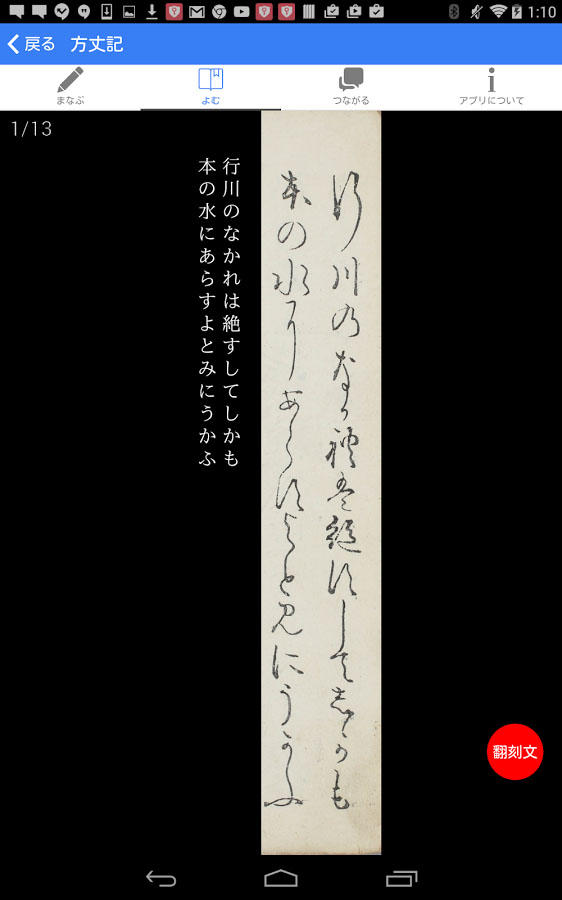 1:10
戻る 方丈記
まなぶ
よむ
つながる
アプリについて
1/13
行川のなかれは絶すしてしかも
本の水にあらすよとみにうかふ
行川のなか礼盤絶須して志可も
本の水尓あらすよと見にうかふ
翻刻文